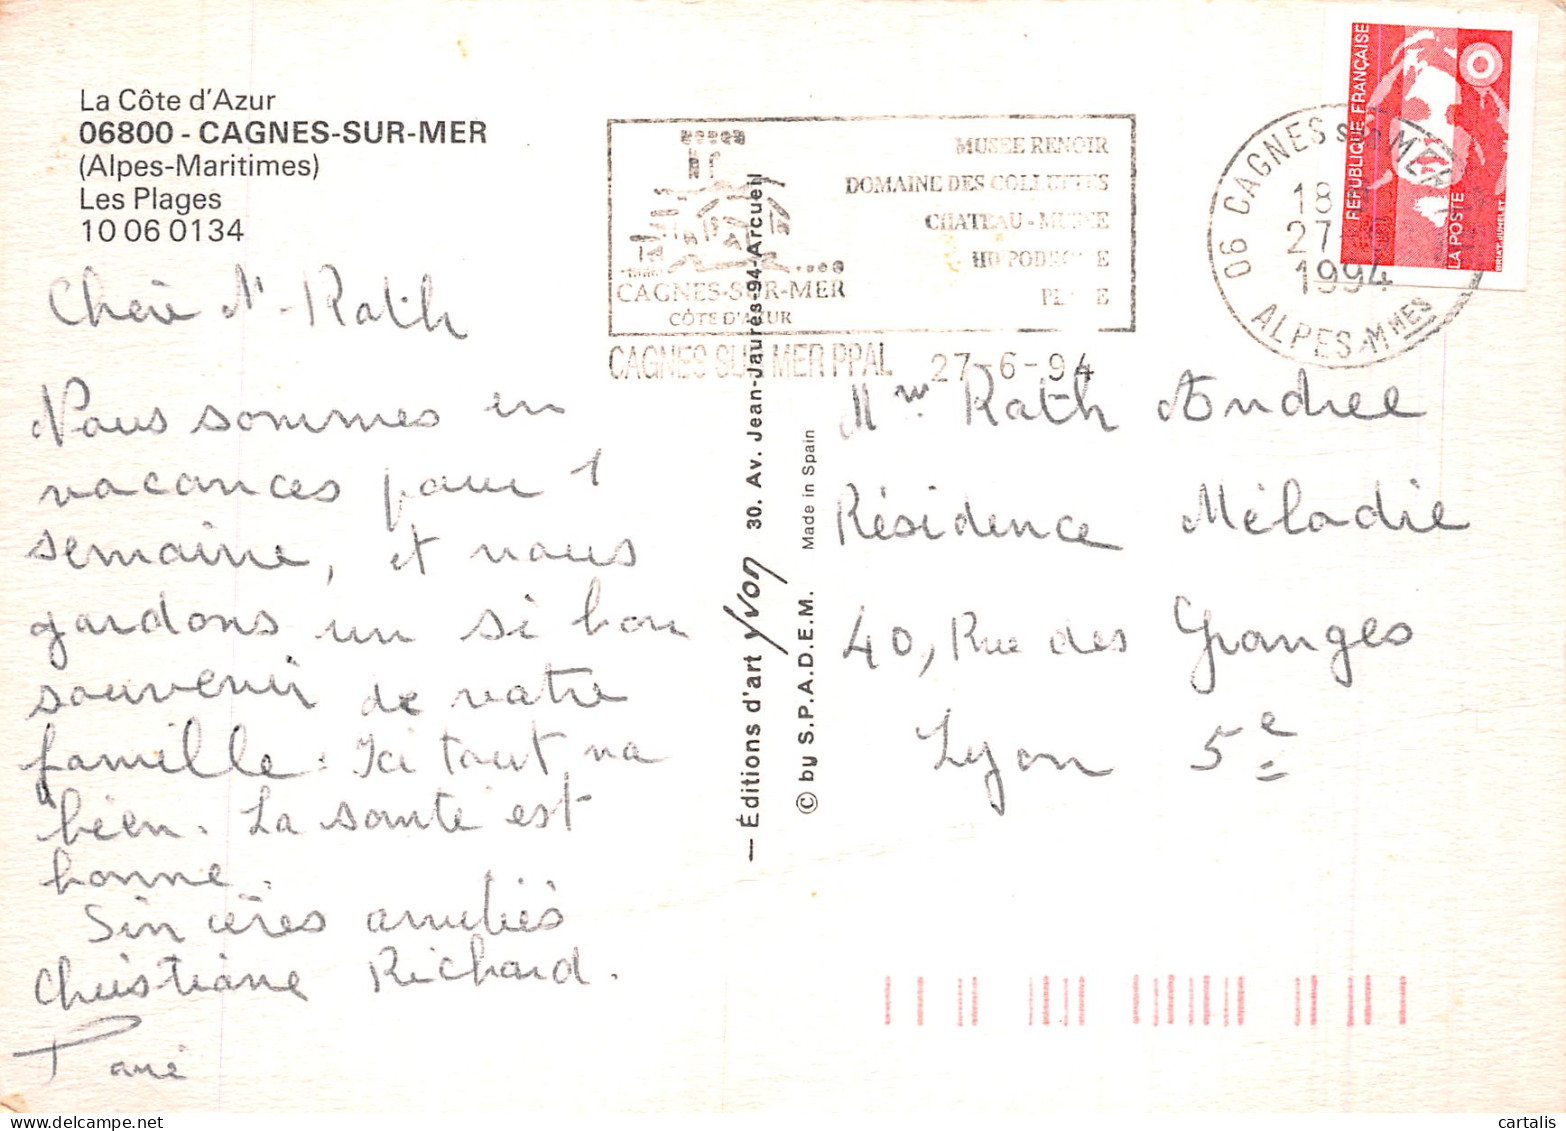 La Côte d'Azur
06800 - CAGNES-SUR-MER
(Alpes-Maritimes)
Les Plages
10 06 0134
Chère M. Rath
Nous sommes en
vacances pour 1
semaine, et nous
gardons un si bon
souvenir de votre
famille. Ici tout va
bien. La santé est
bonne.
Sincères amitiés
Christiane Richard.
CAGNES-SUR-MER
CÔTE D'AZUR
MUSEE RENOIR
DOMAINE DES COLLETTES
CHATEAU-MUSEE
HIPPODROME
CAGNES SUR MER PPAL 27-6-94
06 CAGNES SUR MER
18
27
1994
ALPES-MMES
RÉPUBLIQUE FRANÇAISE
LA POSTE
BRIAT-JUMELET
— Éditions d'art Yvon 30. Av. Jean-Jaurès-94-Arcueil
© by S.P.A.D.E.M. Made in Spain
Mme Rath Andree
Résidence Mélodie
40, Rue des Granges
Lyon 5e